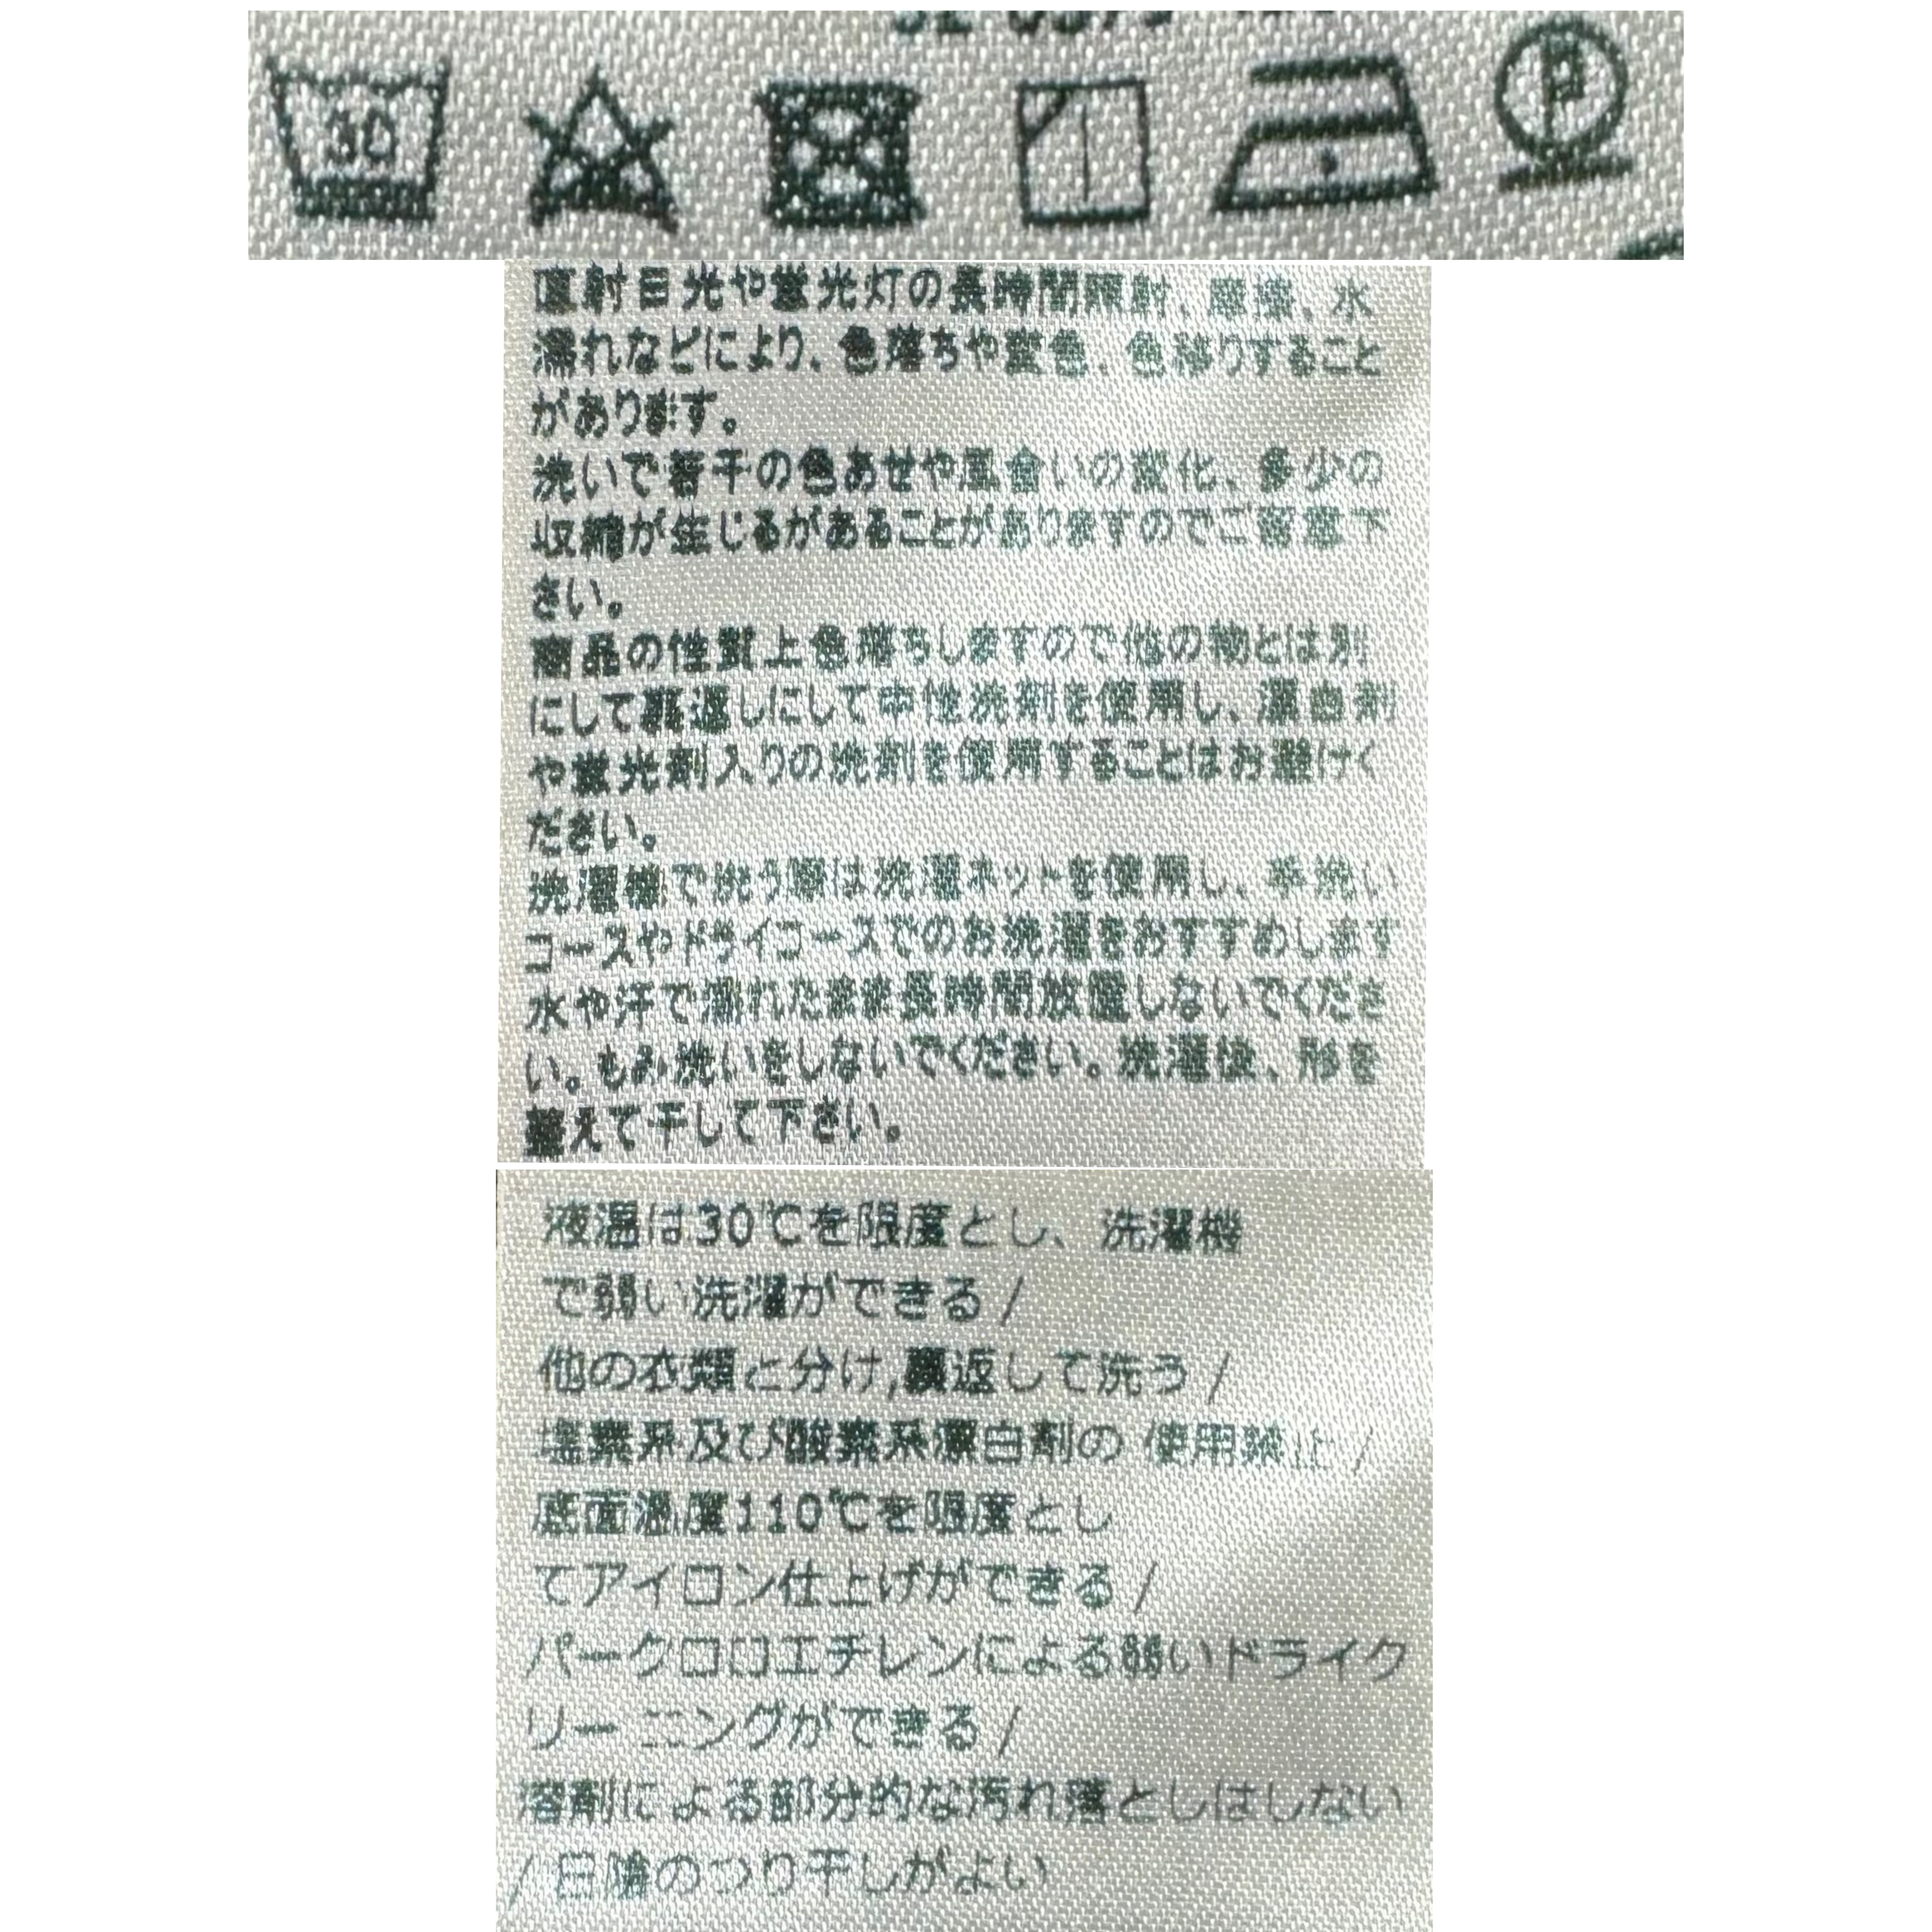 30
P
直射日光や蛍光灯の長時間照射、摩擦、水
濡れなどにより、色落ちや変色、色移りすること
があります。
洗いで若干の色あせや風合いの変化、多少の
収縮が生じるがあることがありますのでご留意下
さい。
商品の性質上色落ちしますので他の物とは別
にして裏返しにして中性洗剤を使用し、漂白剤
や蛍光剤入りの洗剤を使用することはお避けく
ださい。
洗濯機で洗う際は洗濯ネットを使用し、手洗い
コースやドライコースでのお洗濯をおすすめします
水や汗で濡れたまま長時間放置しないでくださ
い。もみ洗いをしないでください。洗濯後、形を
整えて干して下さい。
液温は30℃を限度とし、洗濯機
で弱い洗濯ができる/
他の衣類と分け,裏返して洗う/
塩素系及び酸素系漂白剤の 使用禁止/
底面温度110℃を限度とし
てアイロン仕上げができる/
パークロロエチレンによる弱いドライク
リーニングができる/
溶剤による部分的な汚れ落としはしない
/日陰のつり干しがよい